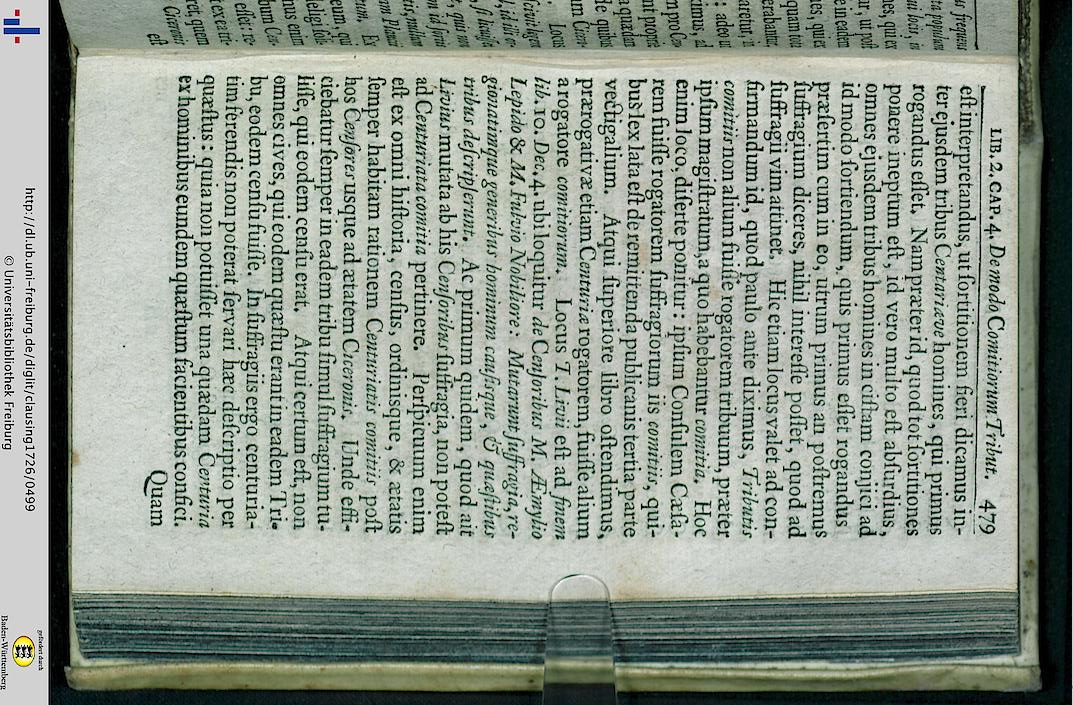 LIB. 2. CAP. 4. De modo Comitiorum Tribut. 479
est interpretandus, ut sortitionem fieri dicamus in-
ter ejusdem tribus Centuriæve homines, qui primus
rogandus esset. Nam præter id, quod tot sortitiones
ponere ineptum est, id vero multo est absurdius,
omnes ejusdem tribus homines in cistam conjici ad
id modo sortiendum, quis primus esset rogandus
præsertim cum eo, utrum primus an postremus
suffragium diceres, nihil interesse posset, quod ad
suffragii vim atinet. Hic etiam locus valet ad con-
firmandum id, quod paulo ante diximus, Tributis
comitiis non alium fuisse rogatorem tribuum, præter
ipsum magistratum, a quo habebantur comitia. Hoc
enim loco, diserte ponitur: ipsum Consulem Cæsa-
rem fuisse rogatorem suffragiorum iis comitiis, qui-
bus lex lata est de remittenda publicanis tertia parte
vectigalium. Atqui superiore libro ostendimus,
prærogativæ etiam Centuriæ rogatorem, fuisse alium
a rogatore comitiorum. Locus 7. Livii est ad finem
lib. 10. Dec. 4. ubi loquitur de Censoribus M. Æmylio
Lepido & M. Fulvio Nobiliore: Mutarunt suffragia, re-
gionatimque generibus hominum causisque, & quæstibus
tribus descripserunt. Ac primum quidem, quod ait
Livius mutata ab his Censoribus suffragia, non potest
ad Centuriata comitia pertinere. Perspicuum enim
est ex omni historia, census, ordinisque, & ætatis
semper habitam rationem Centuriatis comitiis post
hos Censores usque ad ætatem Ciceronis. Unde effi-
ciebatur semper in eadem tribu simul suffragium tu-
lisse, qui eodem censu erat. Atqui certum est, non
omnes cives, qui eodem quæstu erant in eadem Tri-
bu, eodem censu fuisse. In suffragiis ergo centuria-
tim ferendis non poterat servari hæc descriptio per
quæstus: qua non potuisset una quædam Centuria
ex hominibus eundem quæstum facientibus confici.
Quam
http://dl.ub.uni-freiburg.de/diglit/clausing1726/0499
© Universitätsbibliothek Freiburg
gefördert durch
Baden-Württemberg